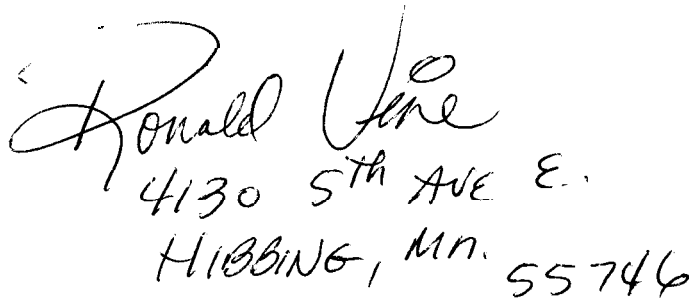 Ronald Vine
4130 5th AVE E.
HIBBING, Mn. 55746